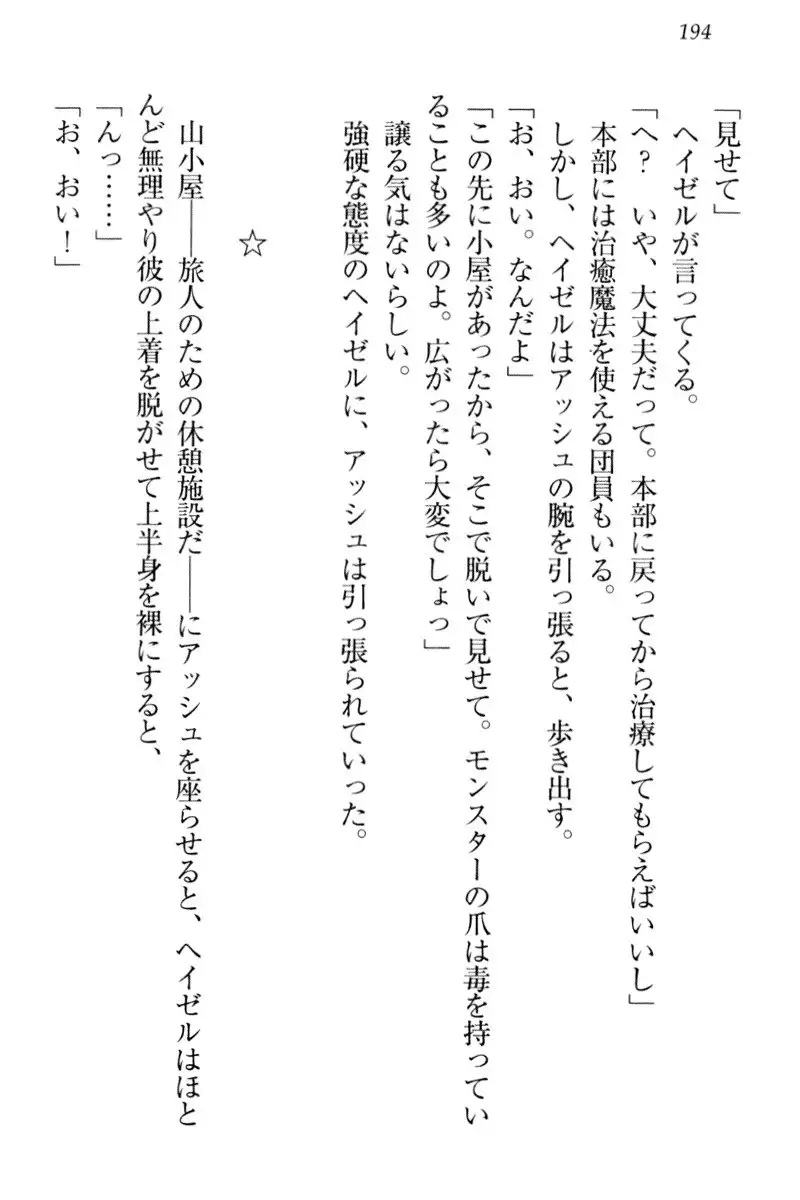 194
「見せて」
　ヘイゼルが言ってくる。
「へ？　いや、大丈夫だって。本部に戻ってから治療してもらえばいいし」
　本部には治癒魔法を使える団員もいる。
　しかし、ヘイゼルはアッシュの腕を引っ張ると、歩き出す。
「お、おい。なんだよ」
「この先に小屋があったから、そこで脱いで見せて。モンスターの爪は毒を持ってい
ることも多いのよ。広がったら大変でしょっ」
　譲る気はないらしい。
　強硬な態度のヘイゼルに、アッシュは引っ張られていった。
☆
　山小屋――旅人のための休憩施設だ――にアッシュを座らせると、ヘイゼルはほと
んど無理やり彼の上着を脱がせて上半身を裸にすると、
「んっ……」
「お、おい！」